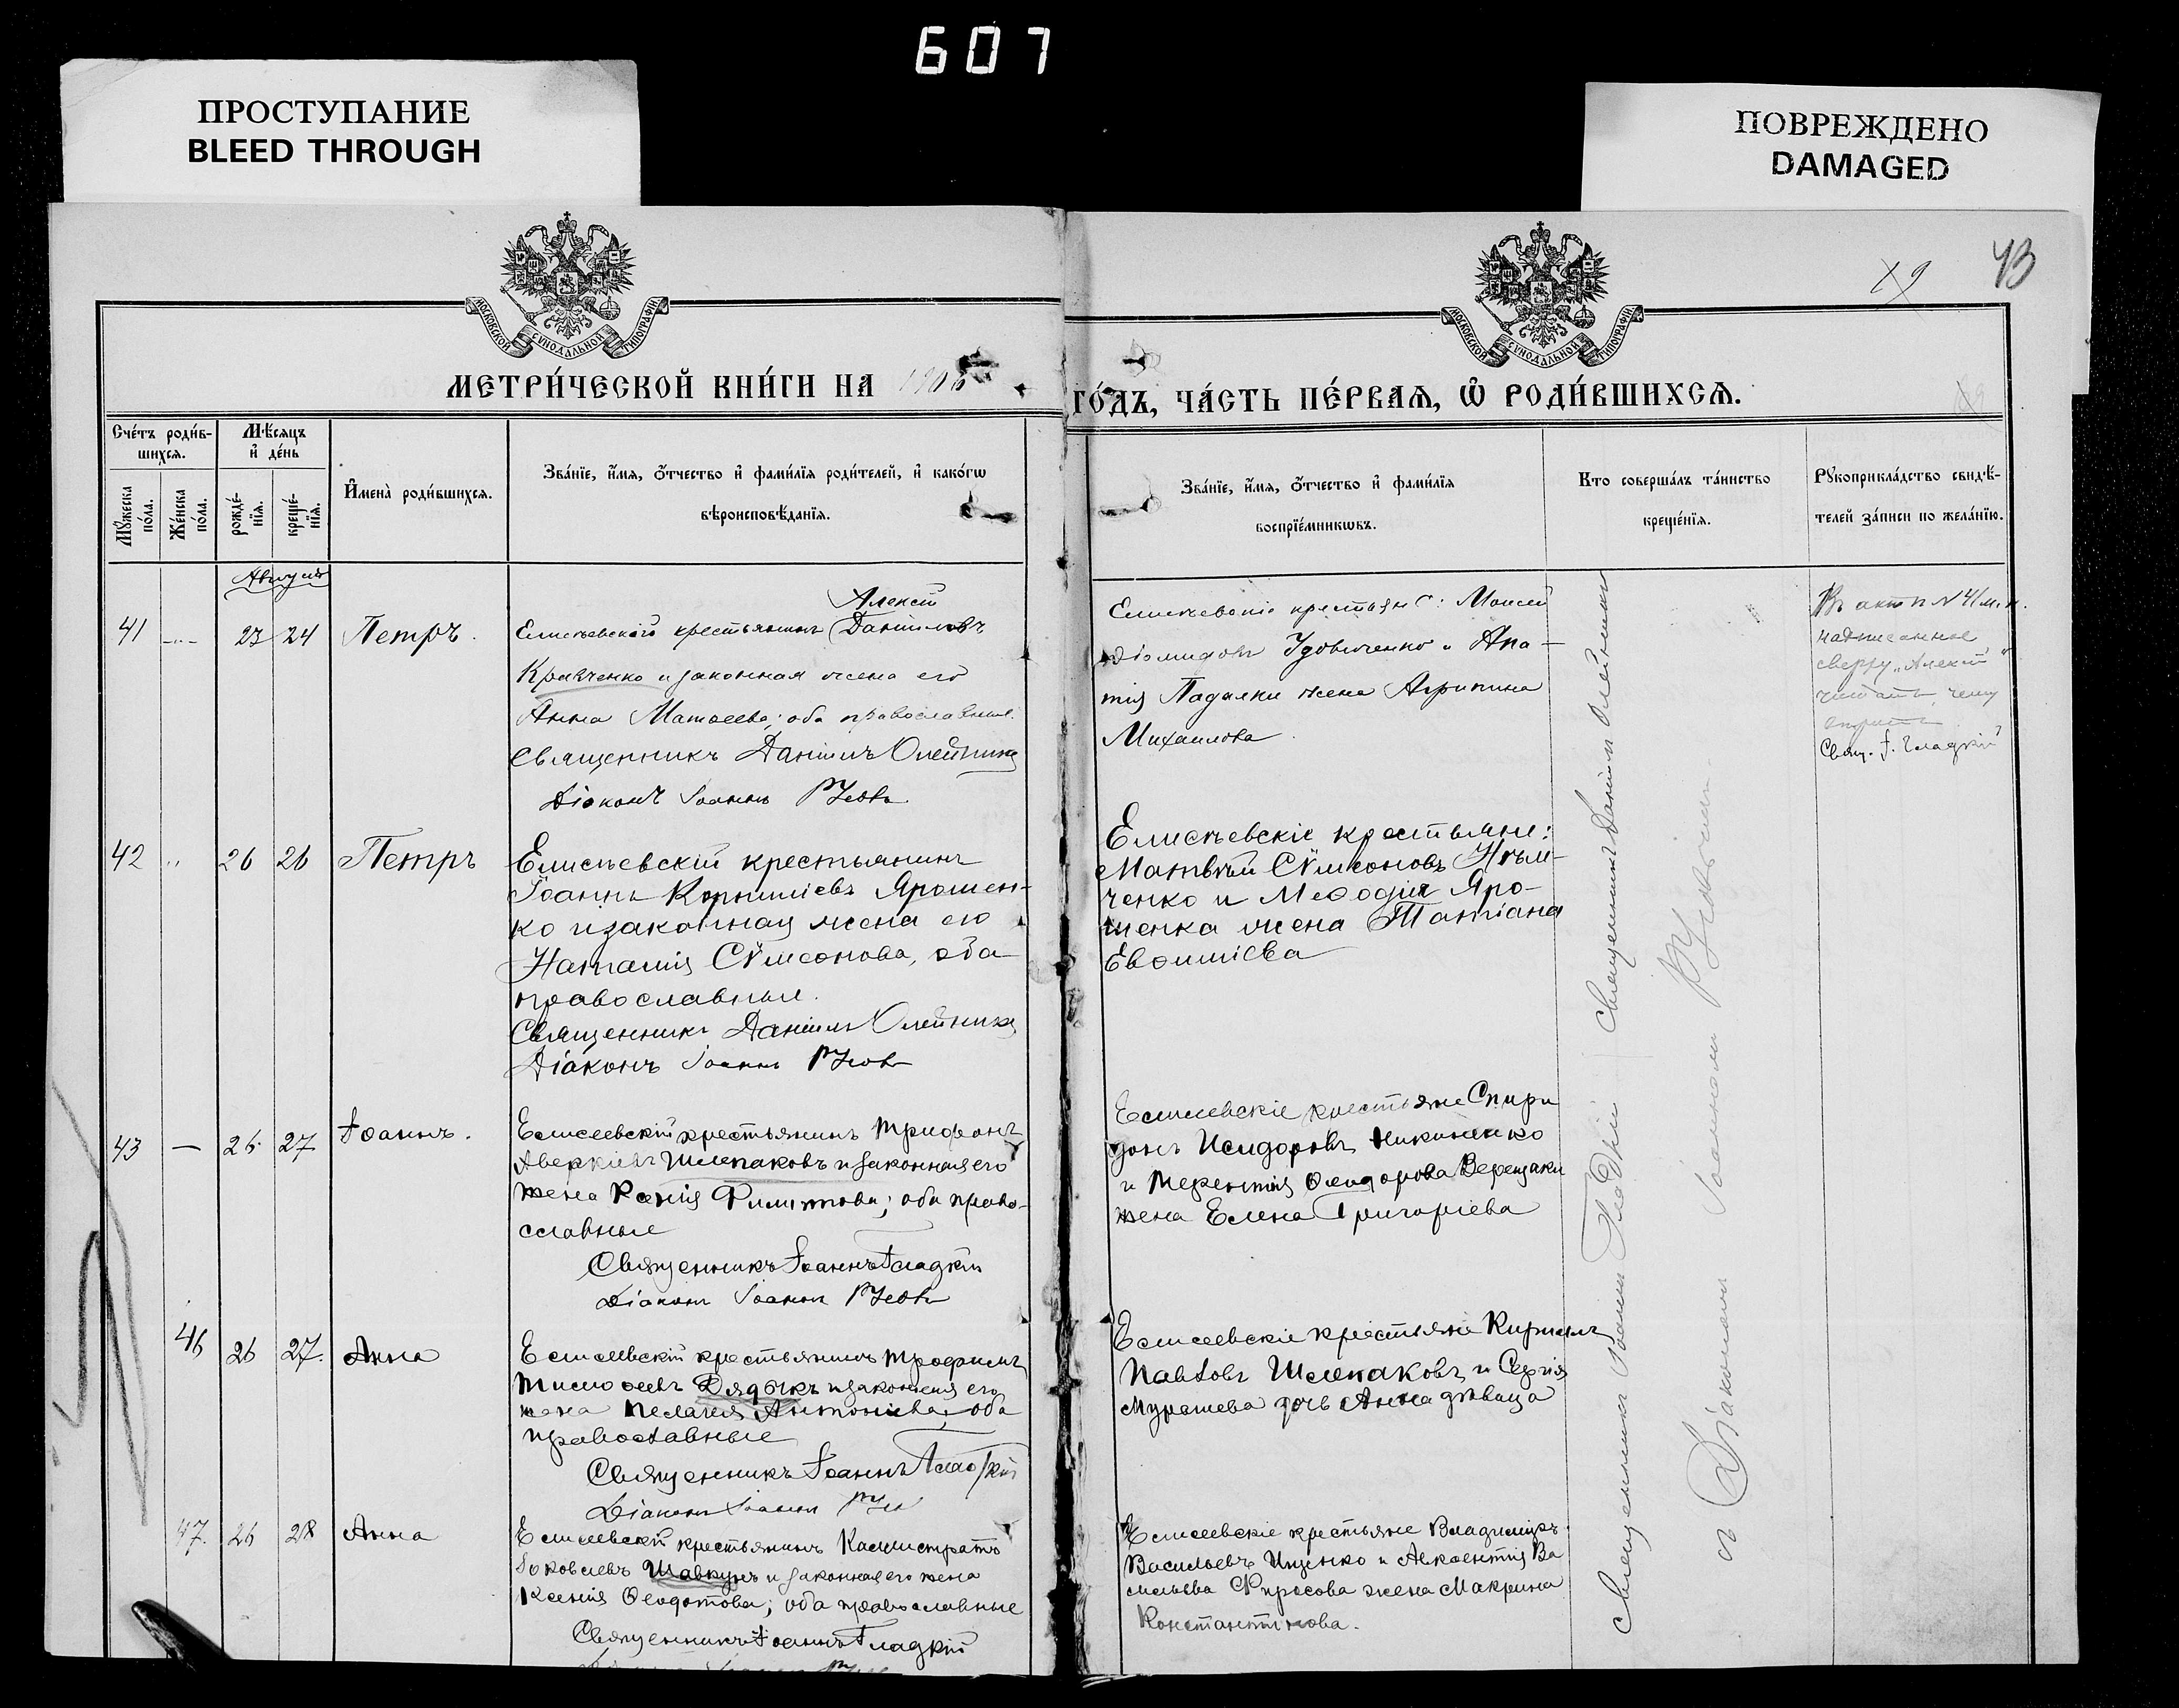 607
ПРОСТУПАНИЕ
BLEED THROUGH
ПОВРЕЖДЕНО
DAMAGED
43
19
МОСКОВСКОЙ СѴНОДАЛЬНОЙ ТИПОГРАФІИ
МОСКОВСКОЙ СѴНОДАЛЬНОЙ ТИПОГРАФІИ
МЕТРИ́ЧЕСКОЙ КНИ́ГИ НА
ГО́ДЪ, ЧА́СТЬ ПЕ́РВАЯ, Ѡ РОДИ́ВШИХСЯ.
Сче́тъ роди́в-
шихся.
Мꙋ́жеска по́ла.
Же́нска по́ла.
Мѣ́сяцъ и де́нь
рожде́-
нїя.
креще́-
нїя.
Имена̀ роди́вшихся.
Зва́нїе, и́мя, о́тчество и фами́лїя роди́телей, и како́гѡ
вѣроисповѣ́данїя.
Зва́нїе, и́мя, о́тчество и фами́лїя
воспрїе́мникѡвъ.
Кто соверша́лъ та́инство
креще́нїя.
Рꙋкоприкла́дство свидѣ́-
телей за́писи по жела́нїю.
Августъ
41 23 24 Петръ.
Алексій
Елисѣевскій крестьянинъ Даніиловъ
Кравченко и законная жена его
Анна Матвеева; оба православные.
Священникъ Даніилъ Олейникъ
Діаконъ Іоаннъ
Елисѣевскіе крестьяне: Моисей
Діомидовъ Удовиченко и
Падалки жена Агрипина
Михаилова.
надписанное
сверху „Алексій"
читать
Свящ. І. Гладкій
42 26 26 Петръ
Елисѣевскій крестьянинъ
Іоаннъ Корниліевъ Ярошен-
ко и законная жена его
Наталія Сѵмеонова, оба
православные.
Священникъ Даніилъ Олейникъ
Діаконъ Іоаннъ
Елисѣевскіе крестьяне:
Матвѣй Сѵмеоновъ
ченко и Меѳодія Яро-
шенка жена Татіана
Евѳиміева
43 — 26 27 Іоаннъ.
Елисеевскій крестьянинъ Трифонъ
Аверкіевъ Шлепаковъ и законная его
жена Ксенія Филиппова; оба право-
славные
Священникъ Іоаннъ Гладкій
Діаконъ Іоаннъ
Елисеевскіе крестьяне Спири
донъ Исидоровъ
и Терентія Ѳеодорова Верещаки
жена Елена Григоріева
46 26 27. Анна
Елисеевскій крестьянинъ Трофимъ
Тимоѳеевъ Дядыкъ и законная его
жена Пелагея Антоніева, оба
православные
Священникъ Іоаннъ Гладкій
Діаконъ Іоаннъ
Елисеевскіе крестьяне Кириллъ
Павловъ Шлепаковъ и Сергія
Мурашева дочь Анна дѣвица
47. 26 28 Анна
Елисеевскій крестьянинъ Каллистратъ
Яковлевъ Шавкунъ и законная его жена
Ксенія Ѳеодотова; оба православные
Священникъ Іоаннъ Гладкій
Елисеевскіе крестьяне Владиміръ
Васильевъ Ищенко и Авксентія Ва
сильева Фирсова жена Макрина
Константинова.
Священникъ Даніилъ Олейникъ
Священникъ Іоаннъ Гладкій
съ Діакономъ Іоанномъ